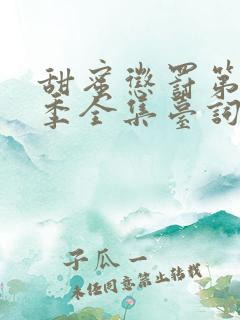 甜蜜懲罰第一
季全集臺詞
子瓜一
未经同意禁止转载